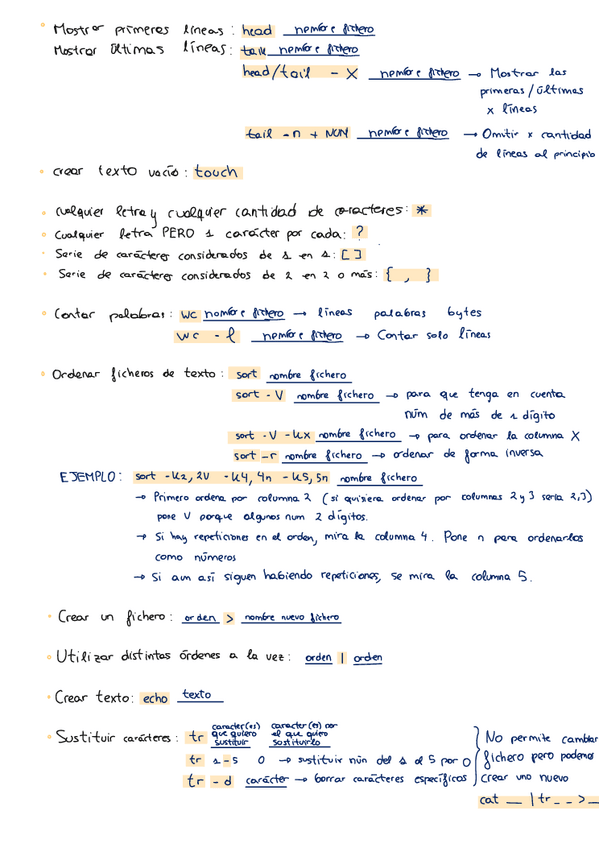 Mostrar primeras líneas: head nombre fichero
Mostrar últimas líneas: tail nombre fichero
head/tail - X nombre fichero → Mostrar las
primeras/últimas
x líneas
tail -n + NUM nombre fichero → Omitir x cantidad
de líneas al principio
crear texto vacío: touch
cualquier letra y cualquier cantidad de caracteres: *
Cualquier letra PERO 1 carácter por cada: ?
Serie de carácteres considerados de 1 en 1: [ ]
Serie de carácteres considerados de 2 en 2 o más: { , }
Contar palabras: wc nombre fichero → líneas palabras bytes
wc - l nombre fichero → Contar solo líneas
Ordenar ficheros de texto: sort nombre fichero
sort - V nombre fichero → para que tenga en cuenta
núm de más de 1 dígito
sort -V -kx nombre fichero → para ordenar la columna X
sort -r nombre fichero → ordenar de forma inversa
EJEMPLO: sort -k2,2V -k4,4n -k5,5n nombre fichero
→ Primero ordena por columna 2 (si quisiera ordenar por columnas 2 y 3 sería 2,3)
pone V porque algunos num 2 dígitos.
→ Si hay repeticiones en el orden, mira la columna 4. Pone n para ordenarlos
como números
→ Si aun así siguen habiendo repeticiones, se mira la columna 5.
Crear un fichero: orden > nombre nuevo fichero
Utilizar distintas órdenes a la vez: orden | orden
Crear texto: echo texto
Sustituir carácteres: tr caracter(es) que quiero sustituir caracter(es) por el que quiero sustituirlo
tr 1-5 0 → sustituir núm del 1 al 5 por 0
tr - d carácter → borrar carácteres específicos
No permite cambiar
fichero pero podemos
crear uno nuevo
cat __ | tr _ _ > _